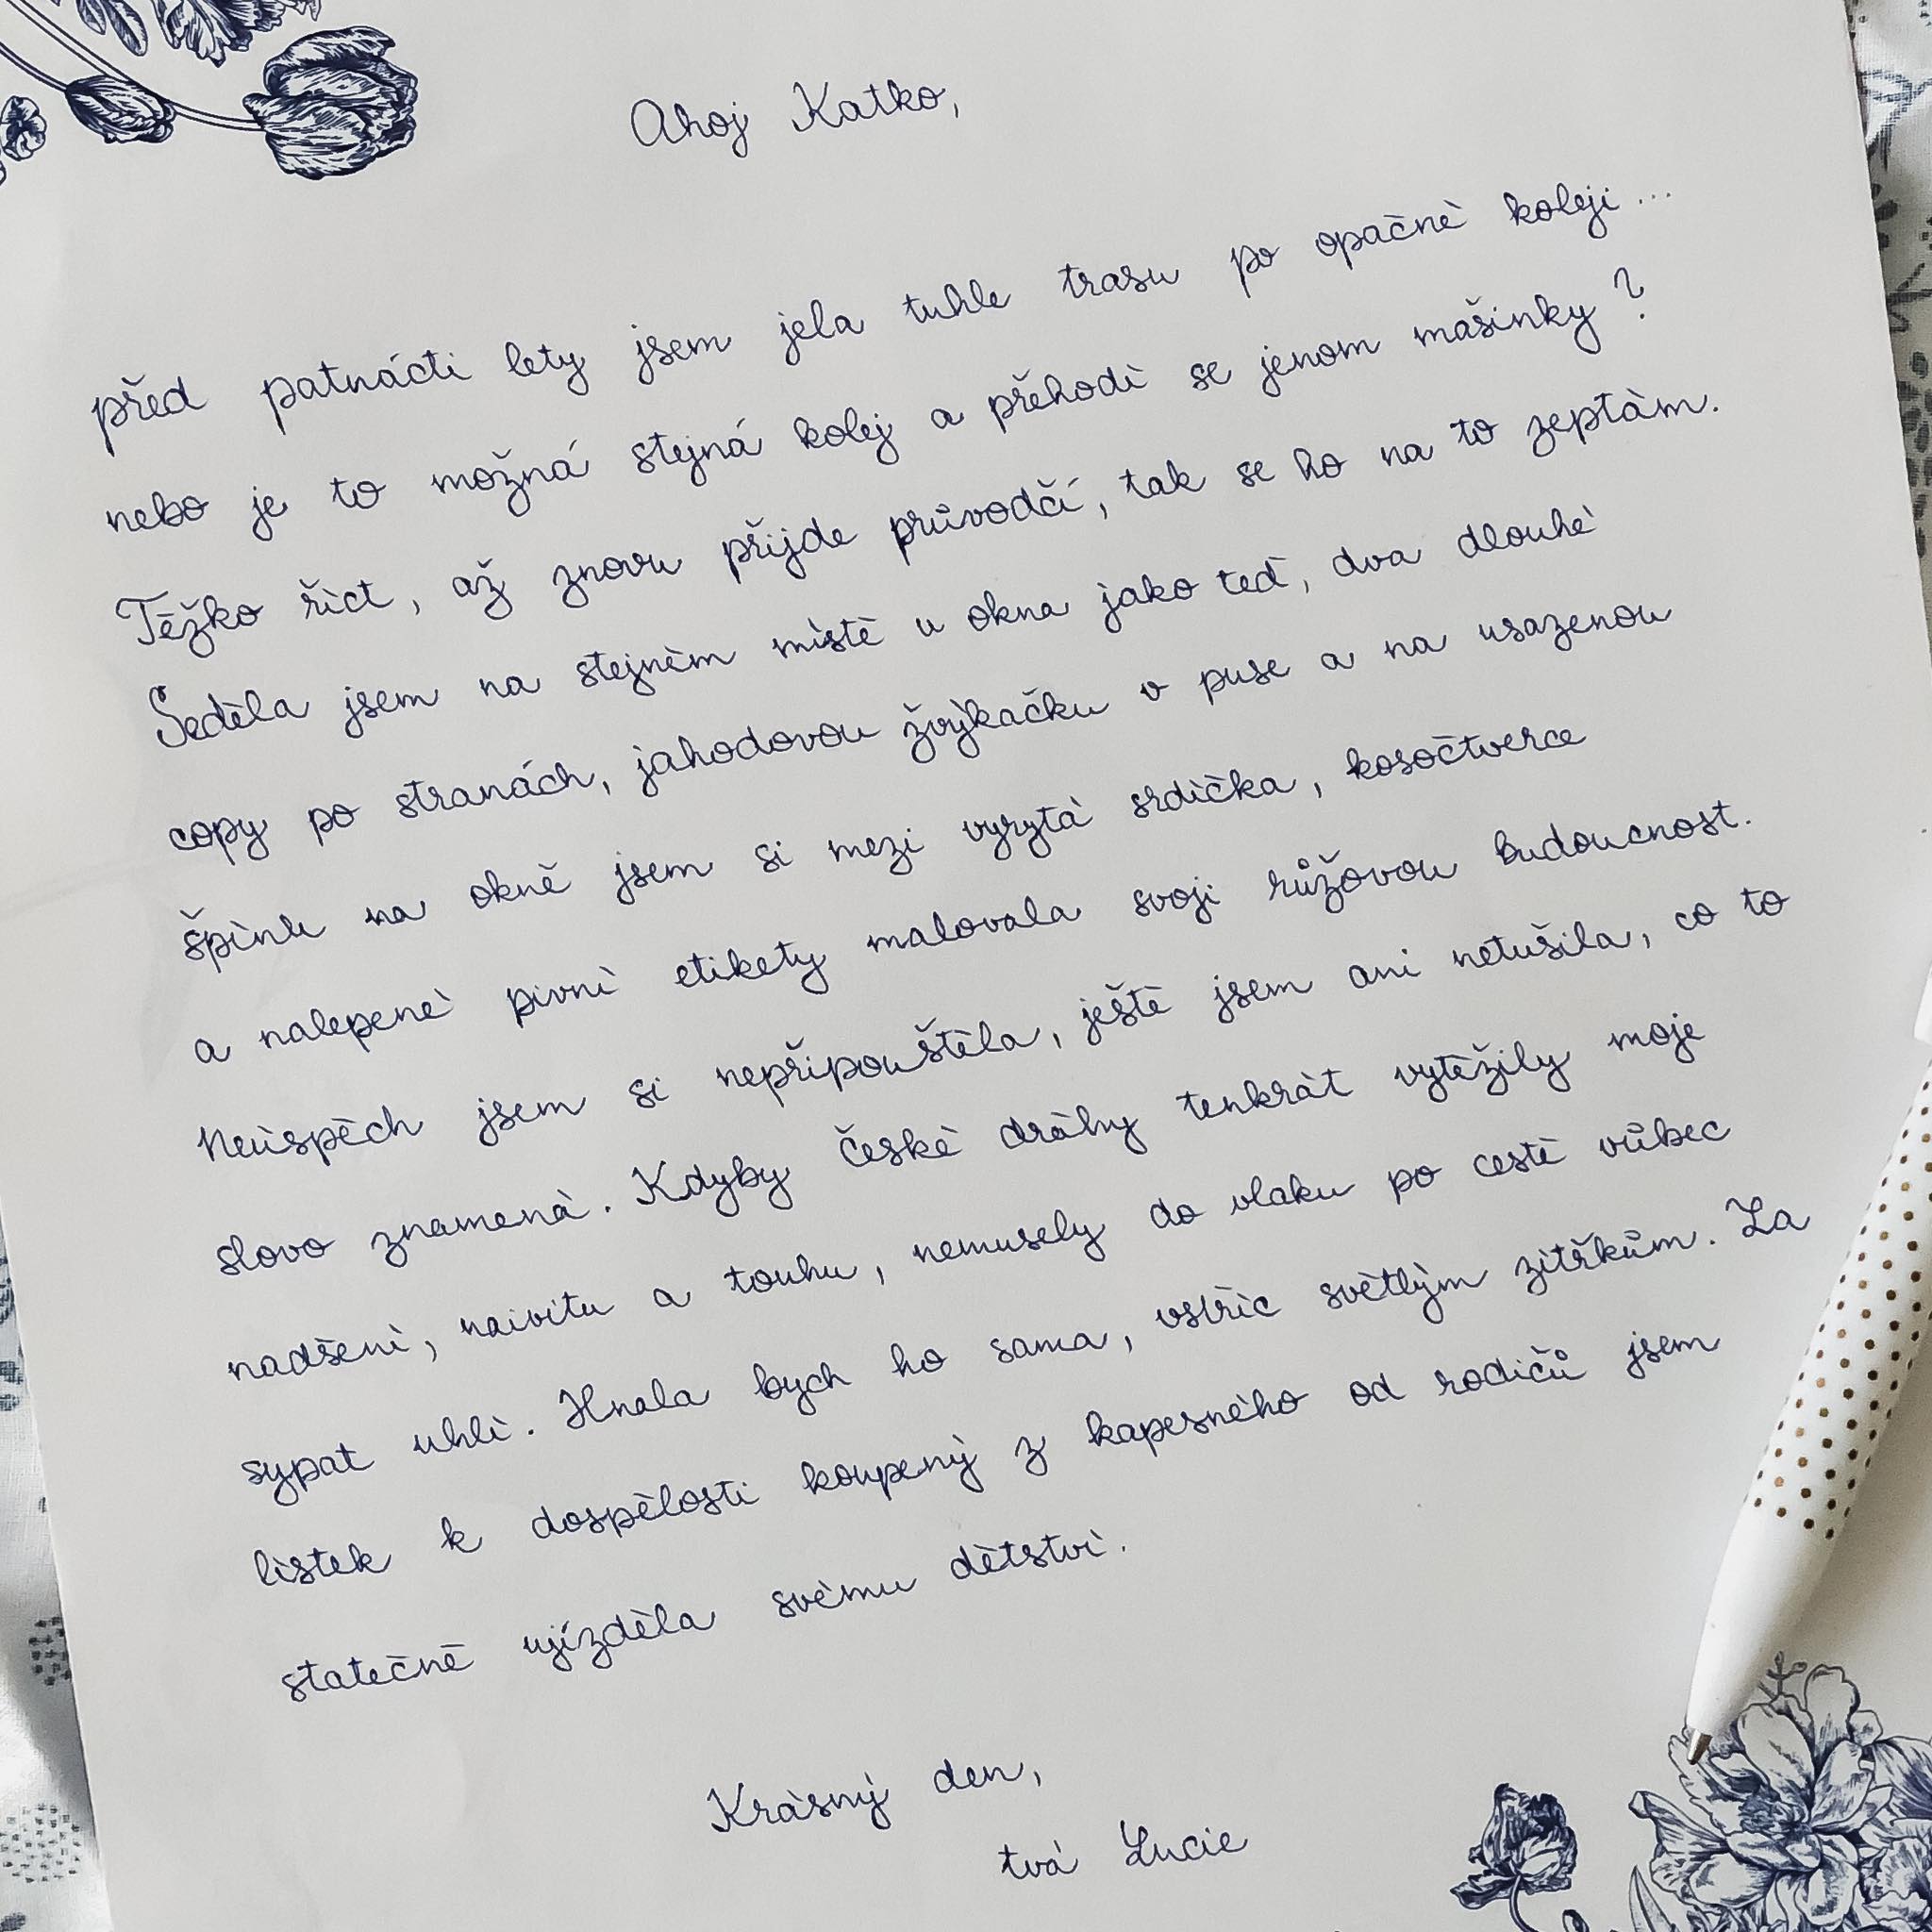 Ahoj Katko,
před patnácti lety jsem jela tuhle trasu po opačné koleji...
nebo je to možná stejná kolej a přehodí se jenom mašinky?
Těžko říct, až znovu přijde průvodčí, tak se ho na to zeptám.
Seděla jsem na stejném místě u okna jako teď, dva dlouhé
copy po stranách, jahodovou žvýkačku v puse a na usazenou
špínu na okně jsem si mezi vyrytá srdíčka, kosočtverce
a nalepené pivní etikety malovala svoji růžovou budoucnost.
Neúspěch jsem si nepřipouštěla, ještě jsem ani netušila, co to
slovo znamená. Kdyby České dráhy tenkrát vytěžily moje
nadšení, naivitu a touhu, nemusely do vlaku po cestě vůbec
sypat uhlí. Hnala bych ho sama, vstříc světlým zítřkům. Za
lístek k dospělosti koupený z kapesného od rodičů jsem
statečně ujížděla svému dětství.
Krásný den,
tvá Lucie